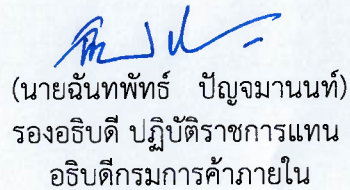 (นายฉันทพัทธ์ ปัญจมานนท์)
รองอธิบดี ปฏิบัติราชการแทน
อธิบดีกรมการค้าภายใน